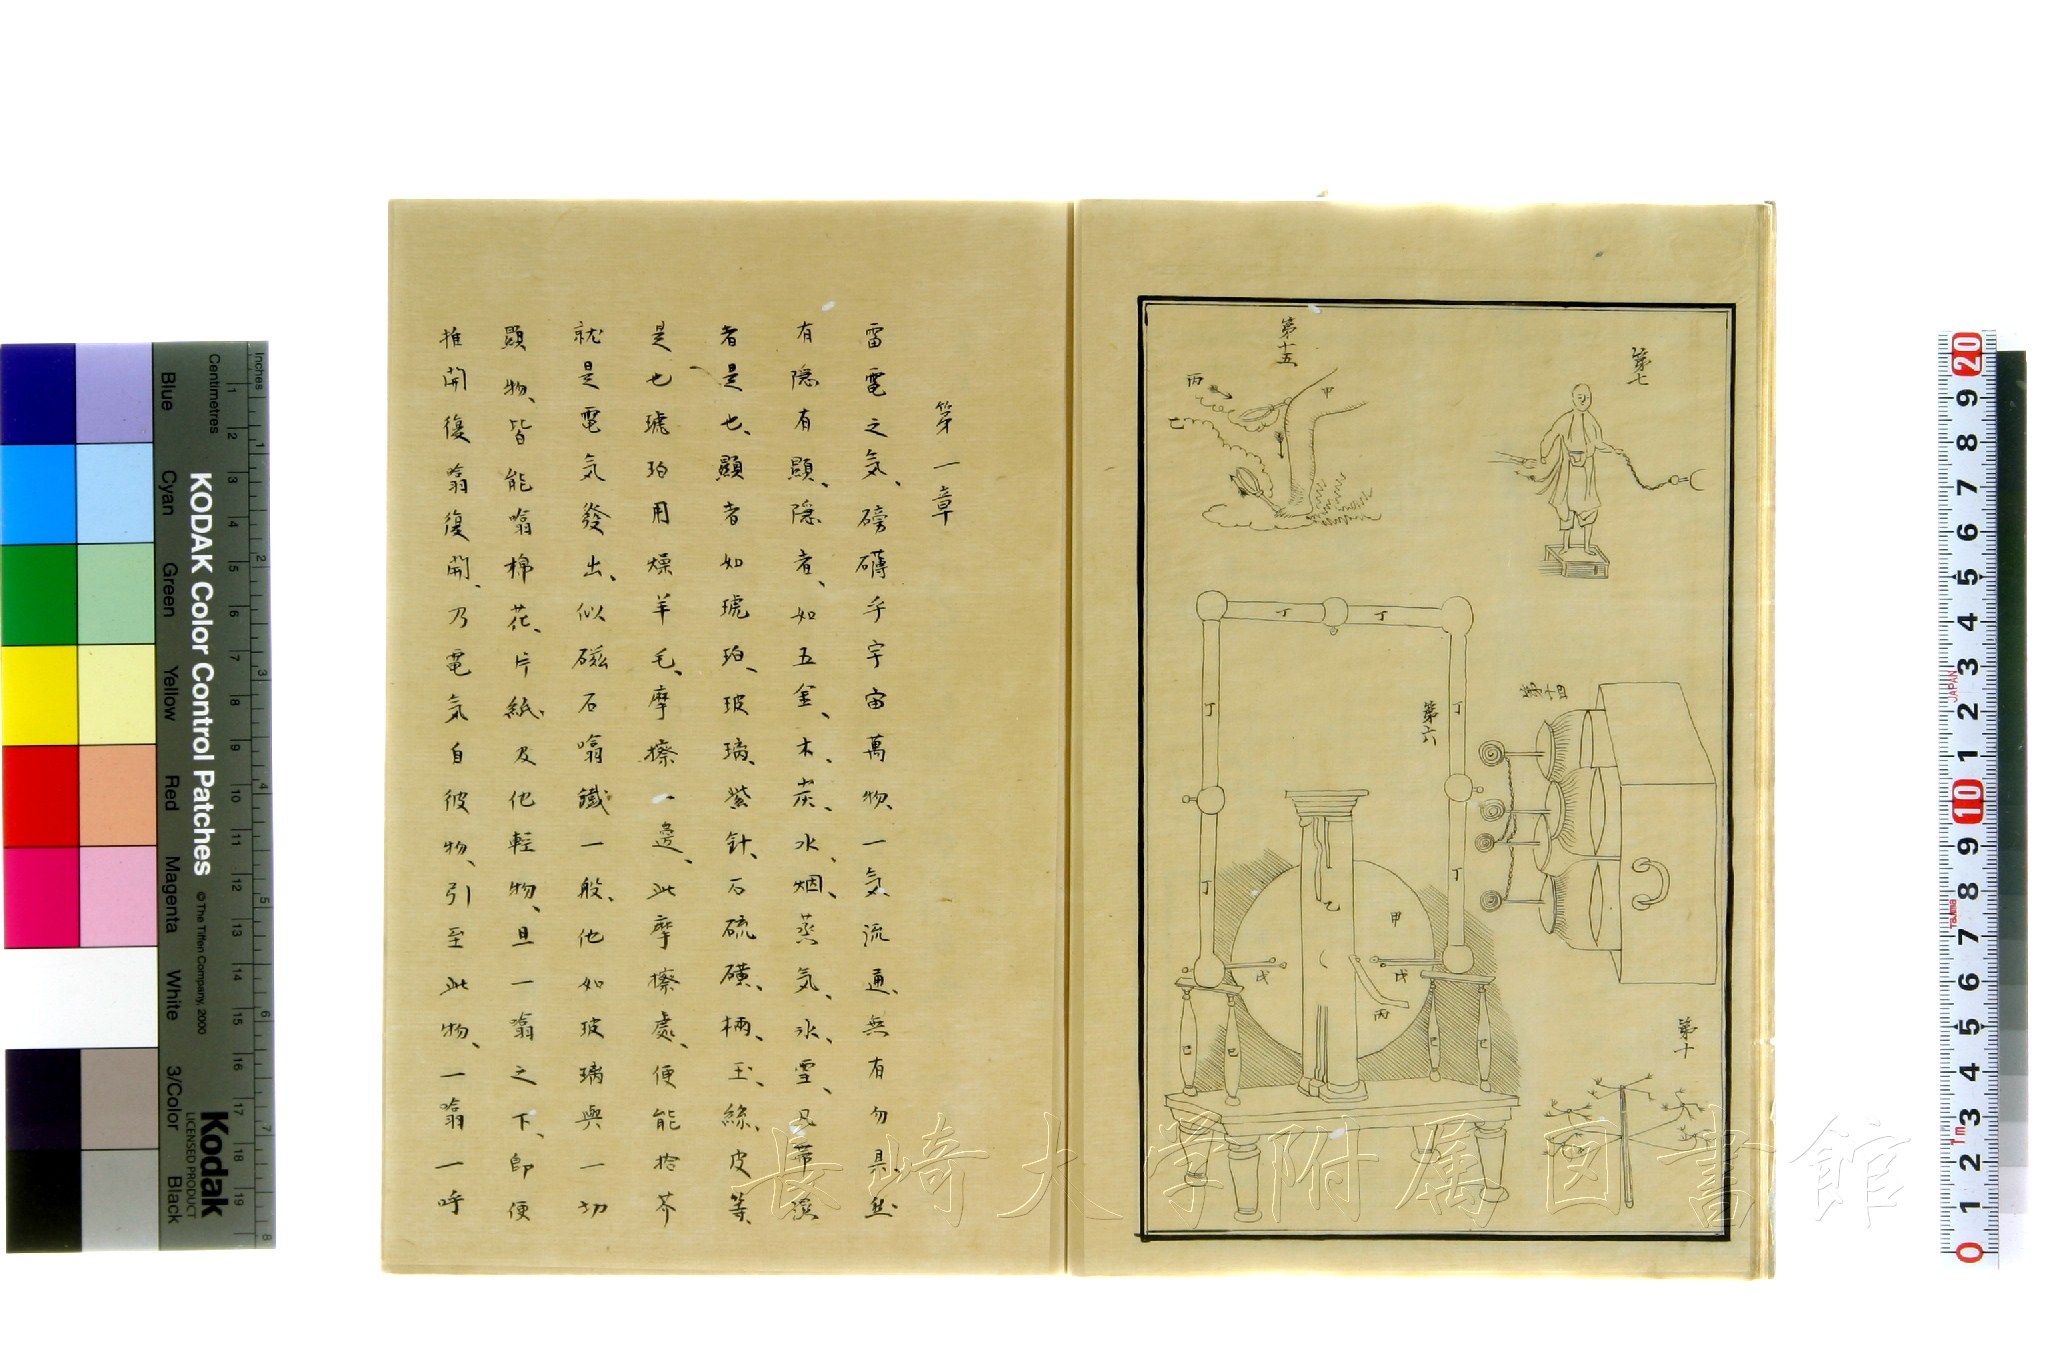 第七
第十五
甲
丙
乙
第六
丁
丁
丁
丁
丁
丁
甲
乙
丙
戊
戊
巳
巳
巳
巳
第十四
第十
第一章
雷電之気、磅礴乎宇宙萬物、一気流通、無有勿具、然
有隠有顯、隠者、如五金、木、炭、水、烟、蒸気、氷、雪、及帯濕
者是也、顯者如琥珀、玻璃、紫針、石硫磺、柄、玉、絲、皮等、
是也、琥珀用燥羊毛、摩擦一邊、此摩擦處、便能拾芥
就是電気發出、似磁石噏鐵一般、他如玻璃與一切
顯物、皆能噏棉花、片紙、及他輕物、且一噏之下、即便
推開復噏復開、乃電気自彼物、引至此物、一噏一呼
長崎大学附属図書館
Inches
Centimetres
KODAK Color Control Patches
© The Tiffen Company, 2000
Kodak
LICENSED PRODUCT
Blue Cyan Green Yellow Red Magenta White 3/Color Black
1 2 3 4 5 6 7 8 9 10 11 12 13 14 15 16 17 18 19
1 2 3 4 5 6 7 8
20 9 8 7 6 5 4 3 2 1 10 9 8 7 6 5 4 3 2 1 0
JAPAN
Tajima